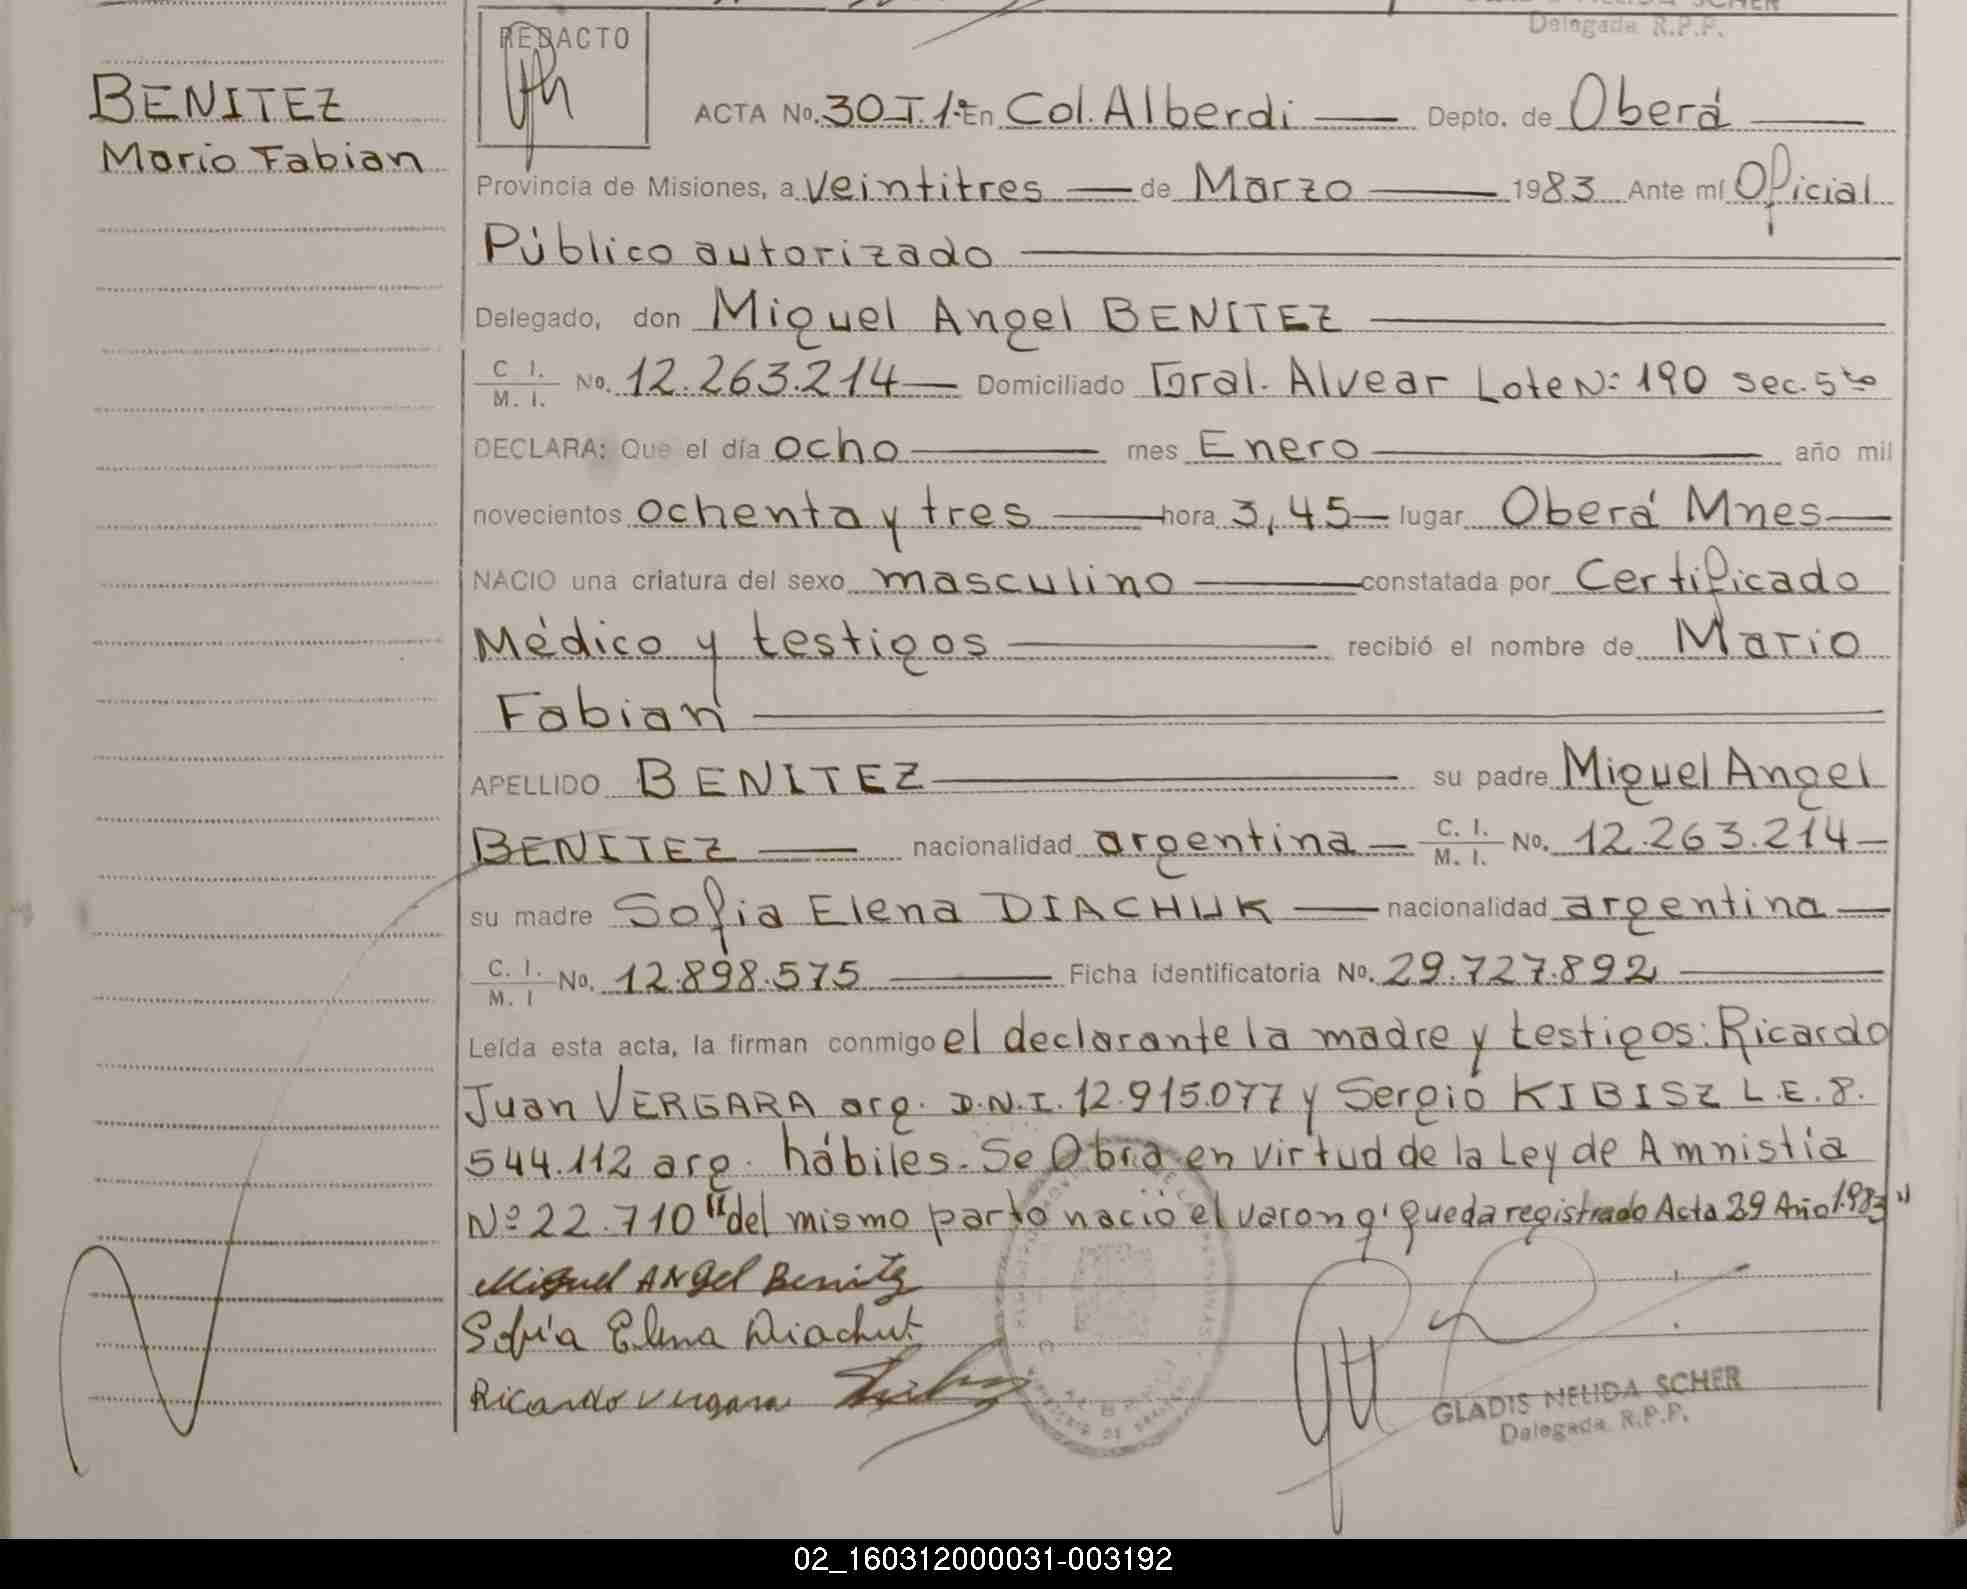 Delegada R.P.P.
REDACTO
BENITEZ
Mario Fabian
ACTA No. 30 T. 1º En Col. Alberdi Depto. de Oberá
Provincia de Misiones, a veintitres de Marzo 1983 Ante mí Oficial
Público autorizado
Delegado, don Miguel Angel BENITEZ
C. I.
M. I. No. 12.263.214 Domiciliado Gral. Alvear Lote Nº 190 sec. 5ta
DECLARA: Que el día ocho mes Enero año mil
novecientos ochenta y tres hora 3,45 lugar Oberá Mnes
NACIO una criatura del sexo masculino constatada por Certificado
Médico y testigos recibió el nombre de Mario
Fabian
APELLIDO BENITEZ su padre Miguel Angel
BENITEZ nacionalidad argentina C. I. M. I. No. 12.263.214
su madre Sofia Elena DIACHUK nacionalidad argentina
C. I. M. I No. 12.898.575 Ficha identificatoria No. 29.727.892
Leída esta acta, la firman conmigo el declarante la madre y testigos: Ricardo
Juan VERGARA arg. D.N.I. 12.915.077 y Sergio KIBISZ L.E. 8.
544.112 arg. hábiles. Se Obra en virtud de la Ley de Amnistía
Nº 22.710 "del mismo parto nació el varon q' queda registrado Acta 29 Año 1.983"
Miguel ANgel Benitez
Sofía Elena Diachuk
Ricardo Vergara
GLADIS NELIDA SCHER
Delegada R.P.P.
02_160312000031-003192